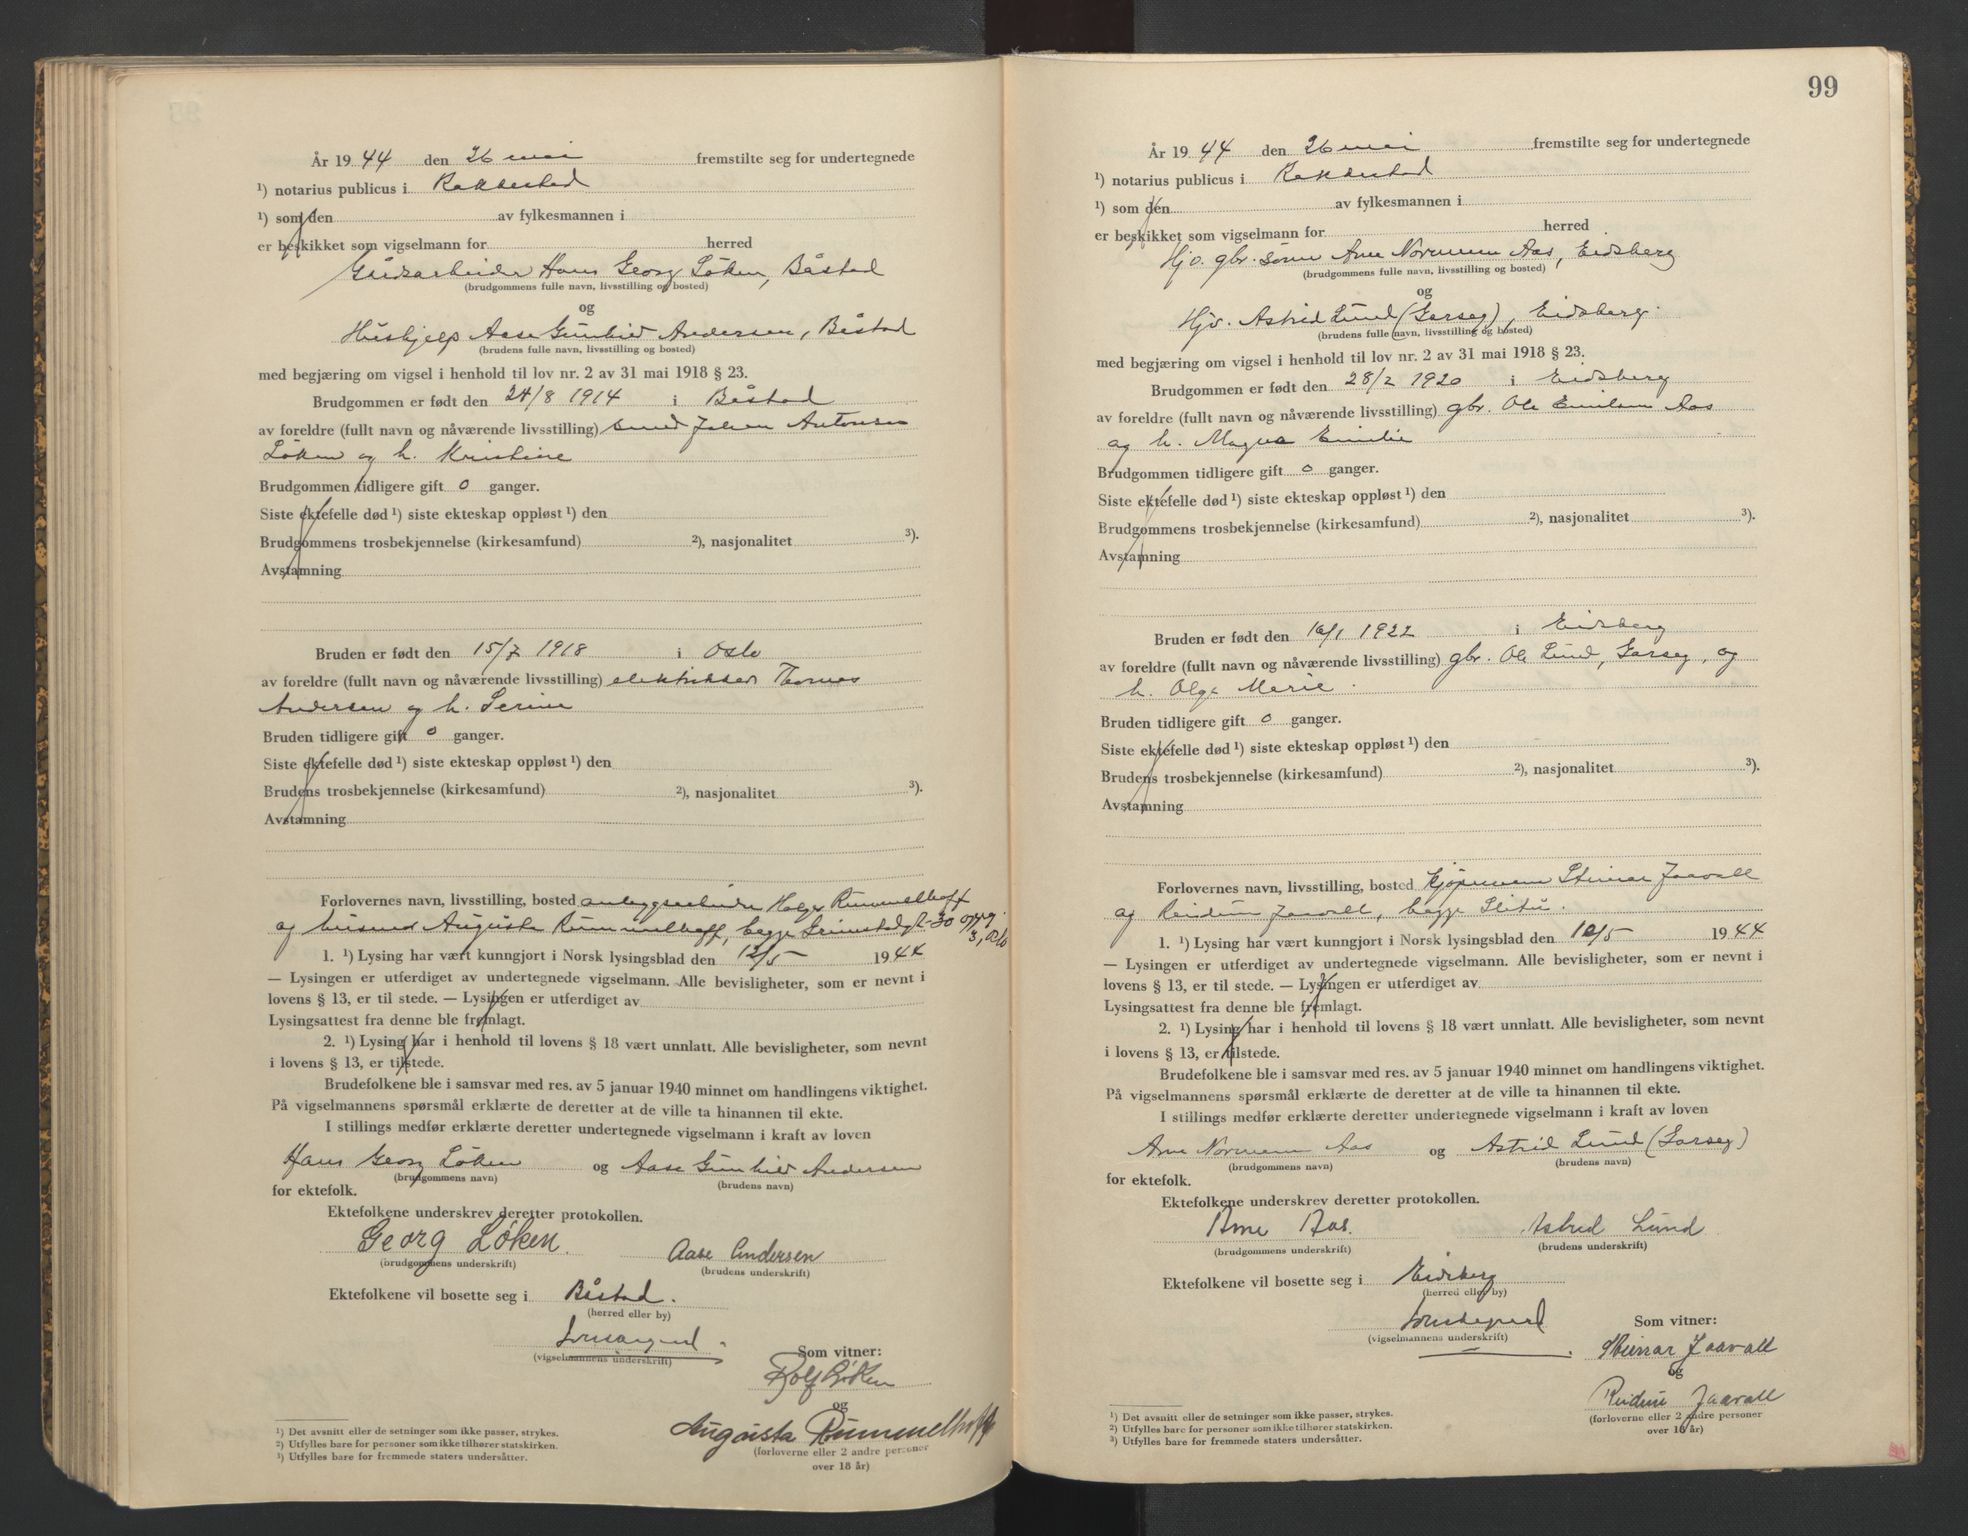 År 19 44 den 26 mai fremstilte seg for undertegnede
¹) notarius publicus i Rakkestad
¹) som den av fylkesmannen i
er beskikket som vigselmann for herred
Gårdsarbeider Hans Georg Løken, Båstad
(brudgommens fulle navn, livsstilling og bosted)
og
Hushjelp Aase Gunhild Andersen, Båstad
(brudens fulle navn, livsstilling og bosted)
med begjæring om vigsel i henhold til lov nr. 2 av 31 mai 1918 § 23.
Brudgommen er født den 24/8 1914 i Båstad
av foreldre (fullt navn og nåværende livsstilling) smed Johan Antonsen
Løken og h. Kristine
Brudgommen tidligere gift 0 ganger.
Siste ektefelle død ¹) siste ekteskap oppløst ¹) den
Brudgommens trosbekjennelse (kirkesamfund) ²), nasjonalitet ³).
Avstamning
Bruden er født den 15/7 1918 i Oslo
av foreldre (fullt navn og nåværende livsstilling) elektriker Thomas
Andersen og h. Serine
Bruden tidligere gift 0 ganger.
Siste ektefelle død ¹) siste ekteskap oppløst ¹) den
Brudens trosbekjennelse (kirkesamfund) ²), nasjonalitet ³).
Avstamning
Forlovernes navn, livsstilling, bosted anleggsarbeider Holger Rummelhoff
og husmod Augusta Rummelhoff, begge 30 oppg.
3, Oslo
1. ¹) Lysing har vært kunngjort i Norsk lysingsblad den 12/5 1944
— Lysingen er utferdiget av undertegnede vigselmann. Alle bevisligheter, som er nevnt i
lovens § 13, er til stede. — Lysingen er utferdiget av
Lysingsattest fra denne ble fremlagt.
2. ¹) Lysing har i henhold til lovens § 18 vært unnlatt. Alle bevisligheter, som nevnt
i lovens § 13, er tilstede.
Brudefolkene ble i samsvar med res. av 5 januar 1940 minnet om handlingens viktighet.
På vigselmannens spørsmål erklærte de deretter at de ville ta hinannen til ekte.
I stillings medfør erklærte deretter undertegnede vigselmann i kraft av loven
Hans Georg Løken og Aase Gunhild Andersen
(brudgommens navn) (brudens navn)
for ektefolk.
Ektefolkene underskrev deretter protokollen.
Georg Løken. Aase Andersen
(brudgommens underskrift) (brudens underskrift)
Ektefolkene vil bosette seg i Båstad.
(herred eller by)
(vigselmannens underskrift)
Som vitner:
Rolf Løken
og
Augusta Rummelhoff
(forloverne eller 2 andre personer
over 18 år)
¹) Det avsnitt eller de setninger som ikke passer, strykes.
²) Utfylles bare for personer som ikke tilhører statskirken.
³) Utfylles bare for fremmede staters undersåtter.
99
År 19 44 den 26 mai fremstilte seg for undertegnede
¹) notarius publicus i Rakkestad
¹) som den av fylkesmannen i
er beskikket som vigselmann for herred
Hjv. gbr. sønn Arne Normann Aas, Eidsberg
(brudgommens fulle navn, livsstilling og bosted)
og
Hjv. Astrid Lund (Garseg), Eidsberg.
(brudens fulle navn, livsstilling og bosted)
med begjæring om vigsel i henhold til lov nr. 2 av 31 mai 1918 § 23.
Brudgommen er født den 28/2 1920 i Eidsberg
av foreldre (fullt navn og nåværende livsstilling) gbr. Ole Emilson Aas
og h. Magna Emilie
Brudgommen tidligere gift 0 ganger.
Siste ektefelle død ¹) siste ekteskap oppløst ¹) den
Brudgommens trosbekjennelse (kirkesamfund) ²), nasjonalitet ³).
Avstamning
Bruden er født den 16/1 1922 i Eidsberg
av foreldre (fullt navn og nåværende livsstilling) gbr. Ole Lund, Garseg, og
h. Olga Marie.
Bruden tidligere gift 0 ganger.
Siste ektefelle død ¹) siste ekteskap oppløst ¹) den
Brudens trosbekjennelse (kirkesamfund) ²), nasjonalitet ³).
Avstamning
Forlovernes navn, livsstilling, bosted kjøpmann Steinar Jaavall
og Reidun Jaavall, begge Slitu.
1. ¹) Lysing har vært kunngjort i Norsk lysingsblad den 10/5 1944
— Lysingen er utferdiget av undertegnede vigselmann. Alle bevisligheter, som er nevnt i
lovens § 13, er til stede. — Lysingen er utferdiget av
Lysingsattest fra denne ble fremlagt.
2. ¹) Lysing har i henhold til lovens § 18 vært unnlatt. Alle bevisligheter, som nevnt
i lovens § 13, er tilstede.
Brudefolkene ble i samsvar med res. av 5 januar 1940 minnet om handlingens viktighet.
På vigselmannens spørsmål erklærte de deretter at de ville ta hinannen til ekte.
I stillings medfør erklærte deretter undertegnede vigselmann i kraft av loven
Arne Normann Aas og Astrid Lund (Garseg)
(brudgommens navn) (brudens navn)
for ektefolk.
Ektefolkene underskrev deretter protokollen.
Arne Aas. Astrid Lund
(brudgommens underskrift) (brudens underskrift)
Ektefolkene vil bosette seg i Eidsberg
(herred eller by)
(vigselmannens underskrift)
Som vitner:
Steinar Jaavall
og
Reidun Jaavall
(forloverne eller 2 andre personer
over 18 år)
¹) Det avsnitt eller de setninger som ikke passer, strykes.
²) Utfylles bare for personer som ikke tilhører statskirken.
³) Utfylles bare for fremmede staters undersåtter.